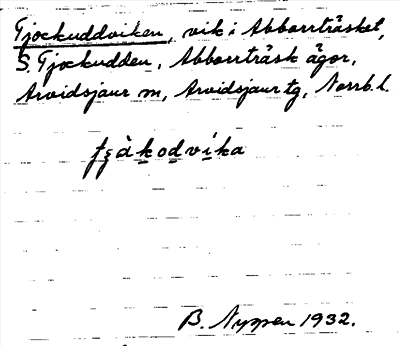 Tjockuddviken, vik i Abborrträsket,
S. Tjockudden, Abborrträsk ägor,
Arvidsjaur sn, Arvidsjaur tg, Norrb. l.
B. Nyman 1932.